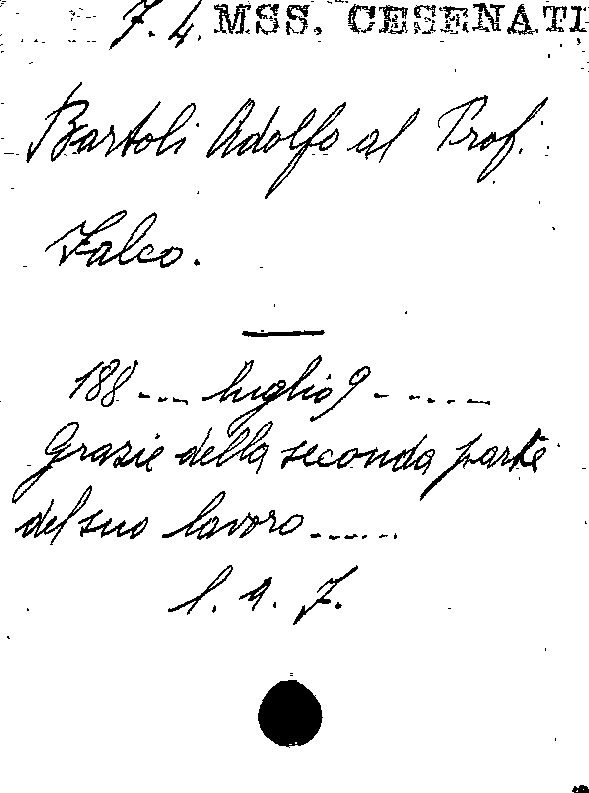 7. 4. MSS. CESENATI
Bartoli Adolfo al Prof.
Falco.
188 ---- luglio 9 ------
Grazie della seconda parte
del suo lavoro ......
l. a. f.